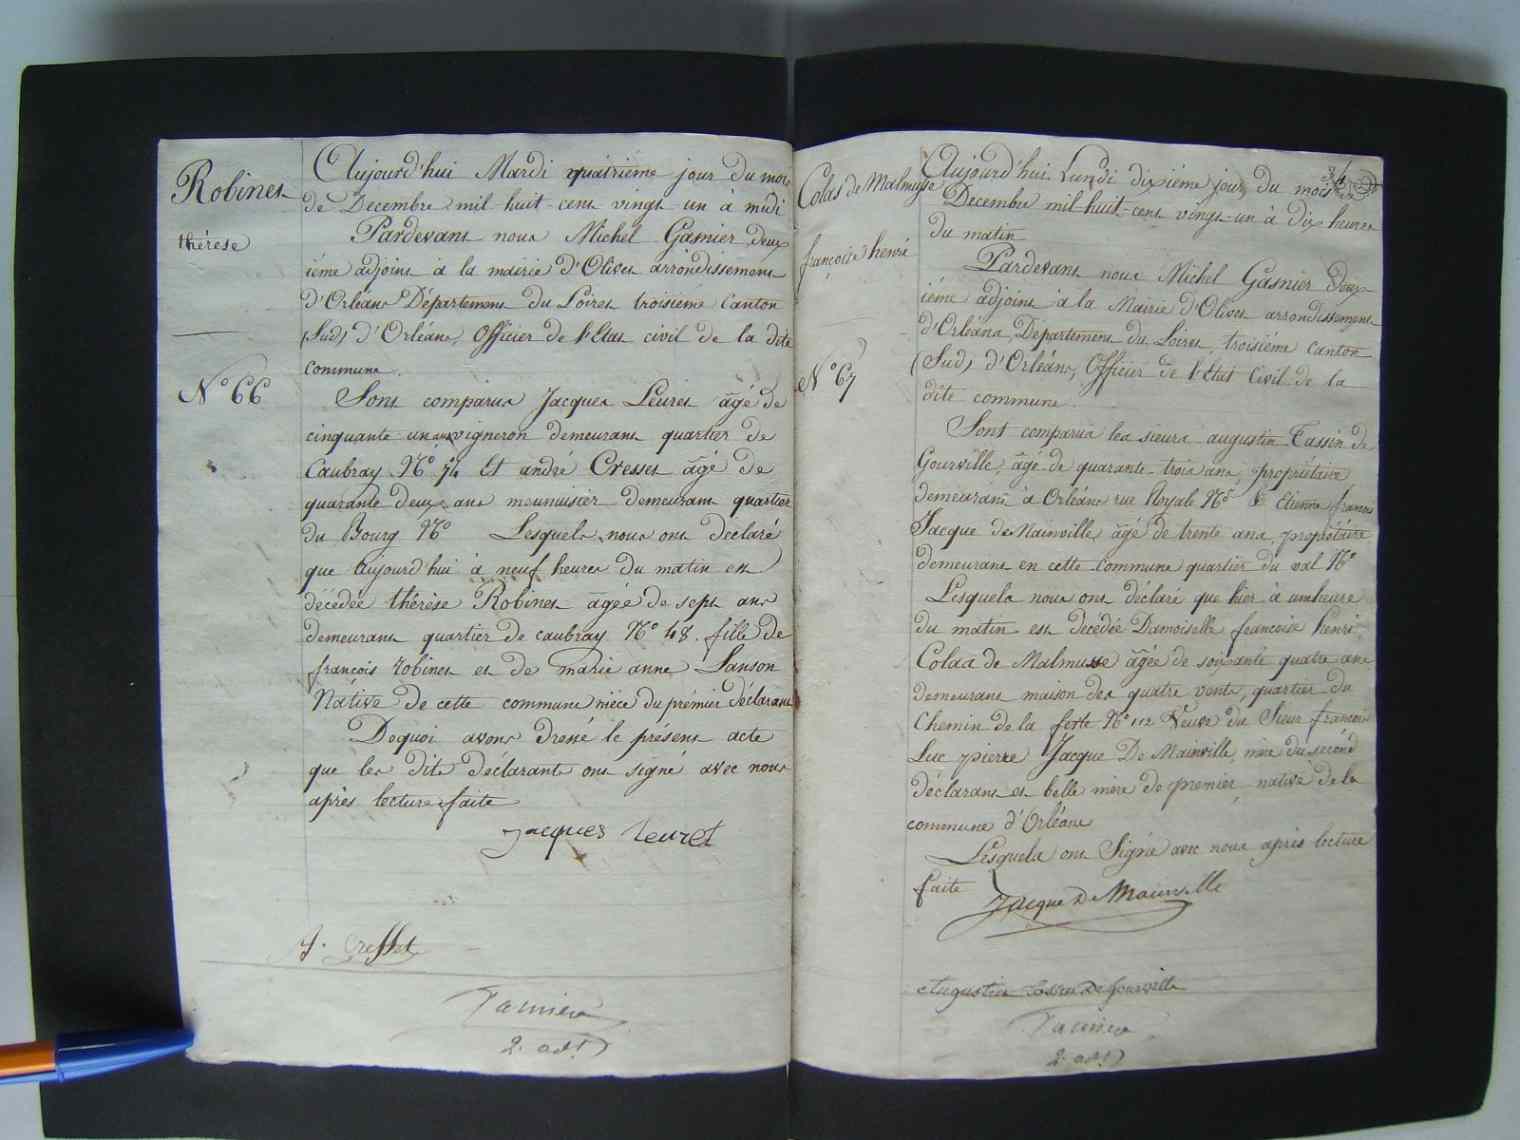 Robinet
thérèse
N° 66
Aujourd'hui Mardi quatrième jour du mois
de Decembre mil huit-cent vingt un à midi
Pardevant nous Michel Gasnier deux
ième adjoint à la mairie d'Olivet arrondissement
d'Orléans Département du Loiret troisième Canton
(Sud) d'Orléans, Officier de l'Etat civil de la dite
commune.
Sont comparus Jacques Leuret âgé de
cinquante un ans vigneron demeurant quartier de
Caubray N° 74 Et andré Cresset âgé de
quarante deux ans meunuisier demeurant quartier
du Bourg N° Lesquels nous ont declaré
que aujourd'hui à neuf heures du matin est
décédée thérèse Robinet âgée de sept ans
demeurant quartier de caubray N° 48. fille de
françois robinet et de marie anne Sanson
Native de cette commune nièce du prémier déclarant
Dequoi avons dressé le présent acte
que les dits déclarants ont signé avec nous
après lecture faite
Jacques Leuret
A. Cresset
2. adjt
Colas de Malmusse
françoise henri
N° 67
34
Aujourd'hui Lundi dixième jour du mois
Decembre mil-huit-cent vingt-un à dix heures
du matin
Pardevant nous Michel Gasnier deux
ième adjoint à la Mairie d'Olivet arrondissement
d'Orléans, Département du Loiret, troisième canton
(Sud) d'Orléans, Officier de l'Etat Civil de la
dite commune.
Sont comparus les sieurs augustin Tassin de
Gourville, âgé de quarante-trois ans, propriétaire
demeurant à Orléans rue Royale N° & Etienne françois
Jacque de Mainville, âgé de trente ans, propriétaire
demeurant en cette commune quartier du val N°
Lesquels nous ont déclaré que hier à une heure
du matin est décédée Damoiselle françoise henri
Colas de Malmusse âgée de soixante quatre ans
demeurant maison des quatre vents, quartier du
Chemin de la ferté N° 112 Veuve du Sieur françois
Luc pierre Jacque De Mainville, mère du sécond
déclarant et belle mère de premier, native de la
commune d'Orléans
Lesquels ont Signé avec nous après lecture
faite
Jacque De Mainville
Augustin Tassin De Gourville
2. adjt